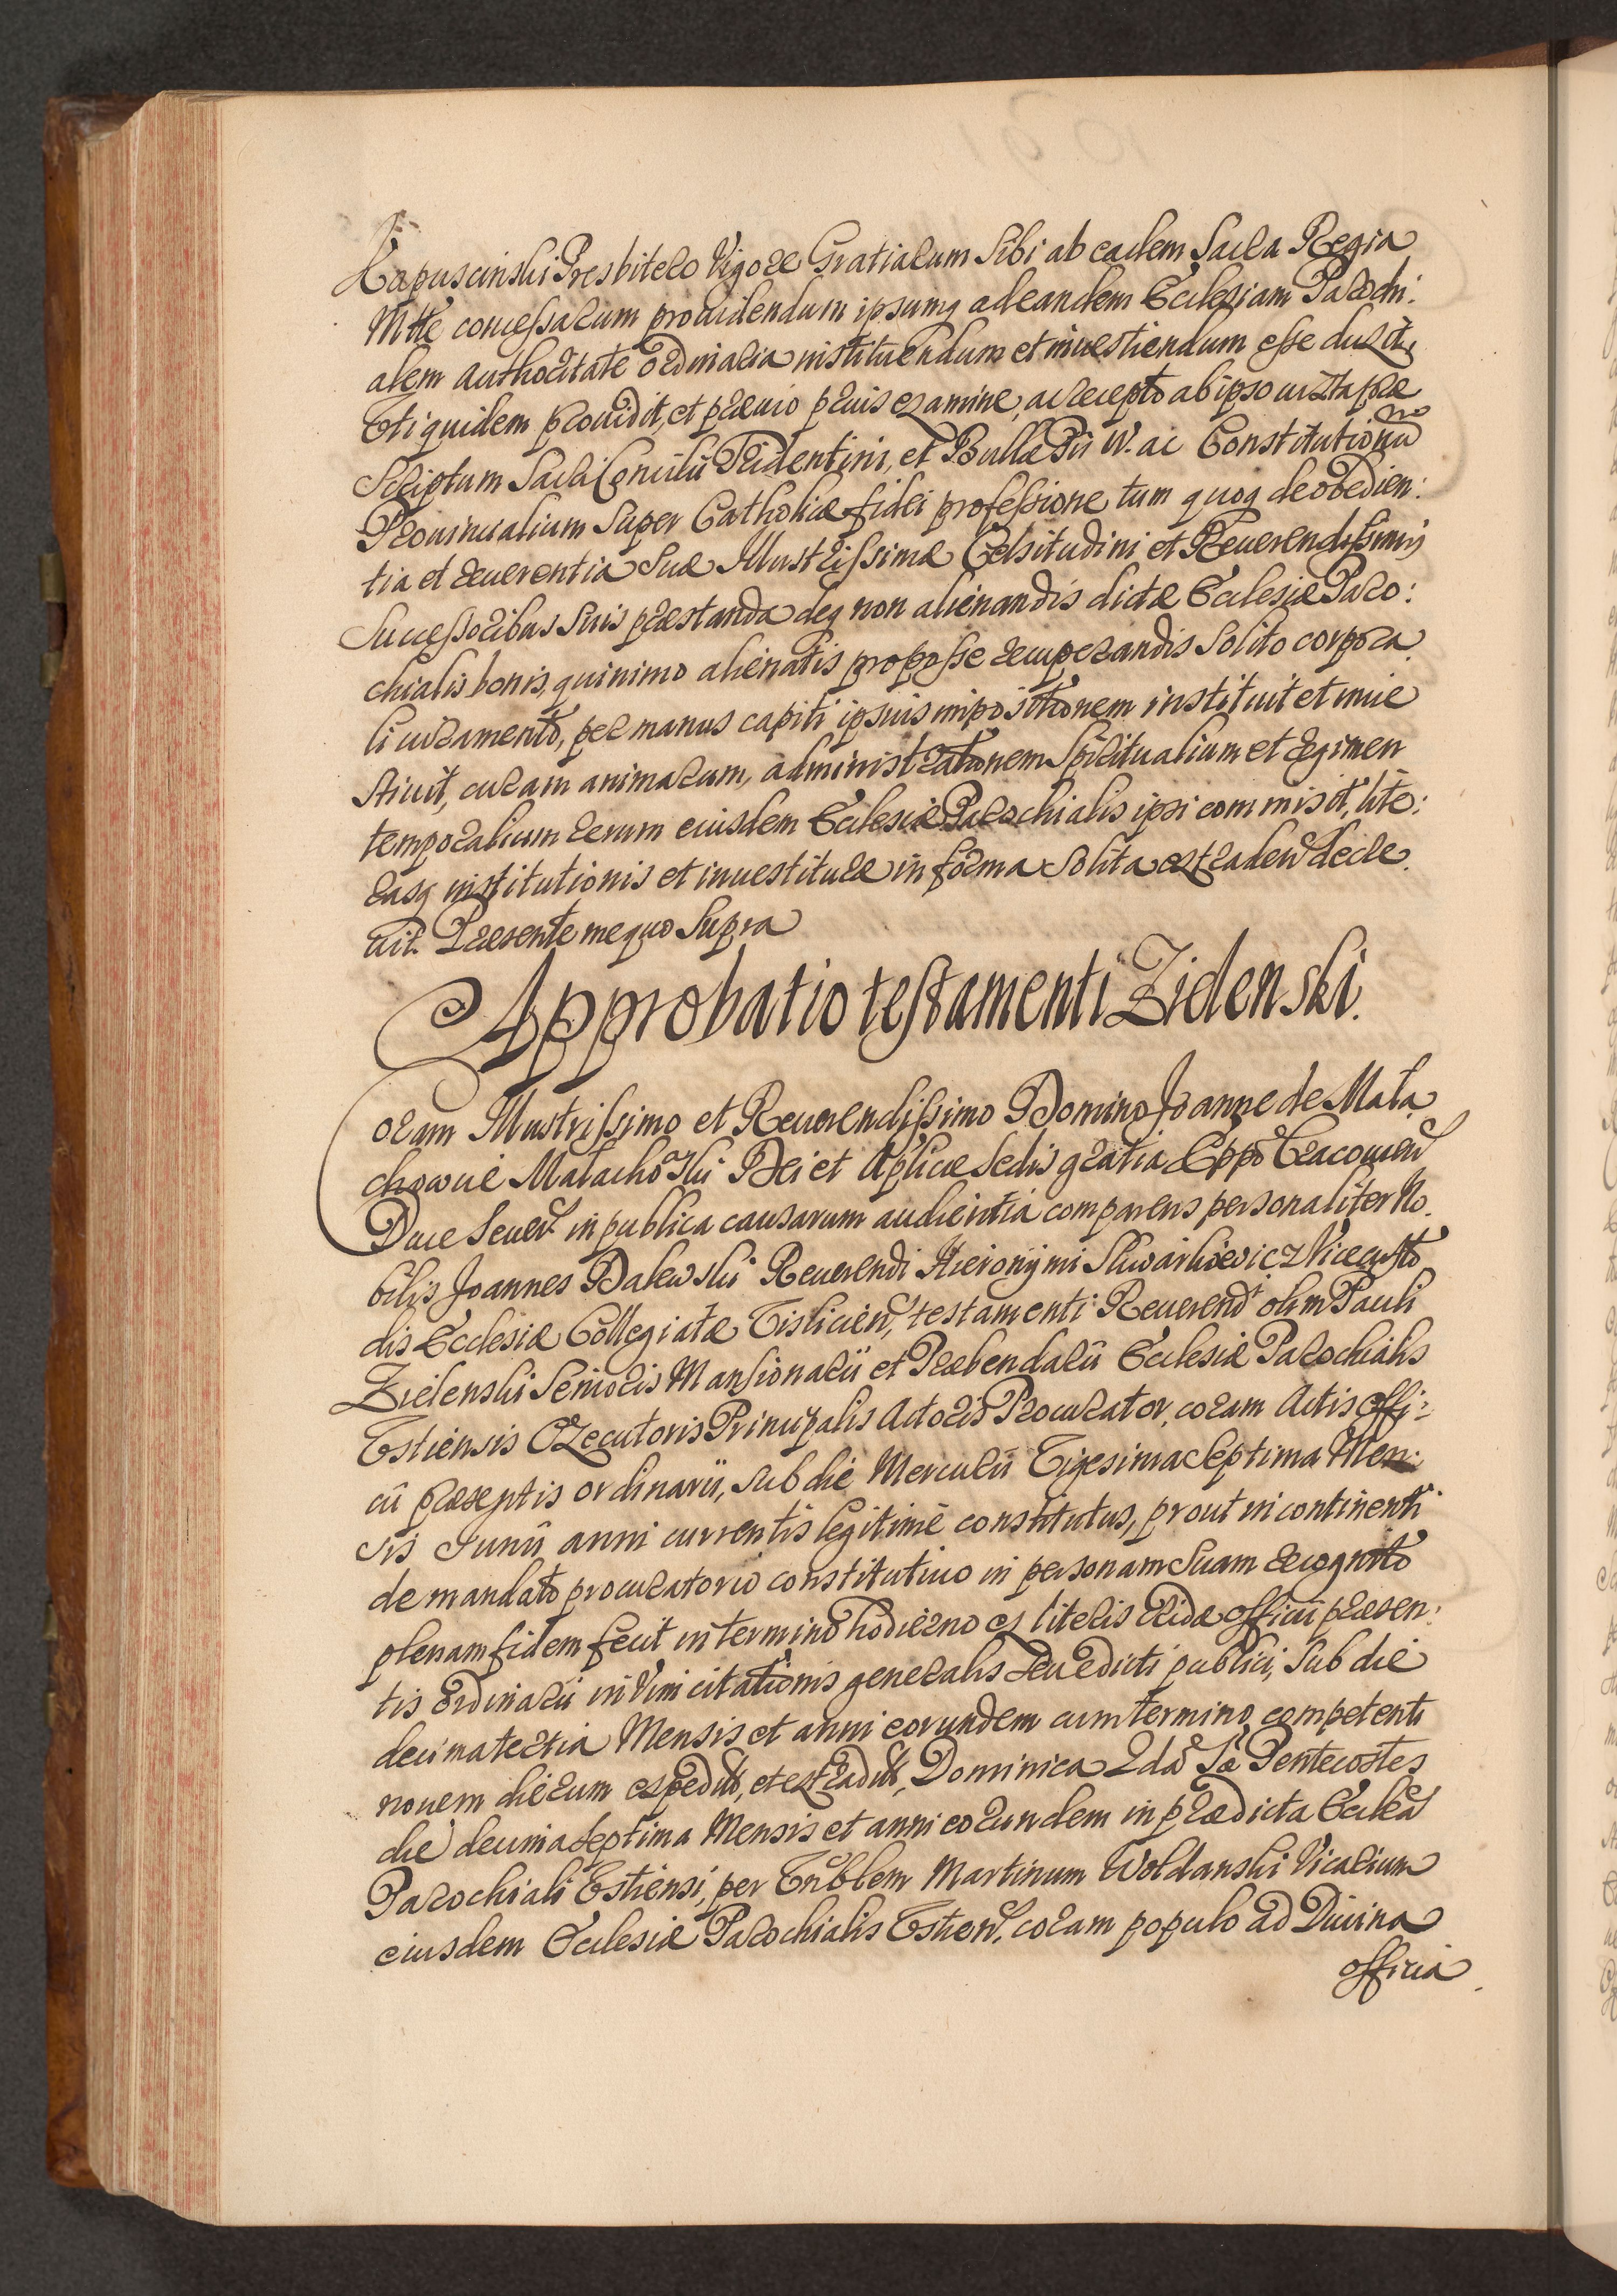 Kapuscinski Presbitero Vigore Gratiarum Sibi ab eadem Sacra Regia
Mtte concessarum providendum ipsumq ad eandem Ecclesiam Parochi:
alem Authoritate ordinaria instituendum et investiendum esse duxit,
Et quidem providit, et prævio prius examine, ac recepto ab ipso iuxta præ
scriptum Sacri Concilii Tridentini, et Bullæ Pii IV. ac Constitutionu
no
Provincialium Super Catholicæ fidei professione tum quoq de obedien:
tia et reverentia Suæ Illustrissimæ Celsitudini et Reverendissimis
Successoribus Suis præstanda deq non alienandis dictæ Ecclesiæ Paro:
chialis bonis, quinimo alienatis pro posse recuperandis Solito corpora
li iuramento, per manus capiti ipsius impositionem instituit et inve
stivit, curam animarum, administrationem Spiritualium et regimen
temporalium rerum eiusdem Ecclesiæ Parochialis ipsi commisit, lite:
rasq institutionis et investituræ in forma Solita extraden decre
vit. Præsente me quo Supra
Approbatio testamenti Zidenski.
Coram Illustrissimo et Reverendissimo Domino Joanne de Mala
chowice Malachowski Dei et Aplicæ Sedis gratia Eppo Cracovien
Duce Severi in publica causarum audientia comparens personaliter No.
bilis Joannes Dalewski Reverendi Hieronymi Skwarkiewicz Vicecusto
dis Ecclesiæ Collegiatæ Vislicien, testamenti Reverend olim Pauli
Zielenski Senioris Mansionarii et Præbendarii Ecclesiæ Parochialis
Estiensis Executoris Principalis Actoris Procurator, coram Actis offi:
cii præsentis ordinarii, sub die Mercurii Vigesima Septima Men:
sis Junii anni currentis legitime constitutus, prout in continenti
de mandato procuratorio constitutivo in personam Suam recognito
plenam fidem fecit in termino hodierno ex literis Cridæ officii præsen:
tis ordinarii in Vim citationis generalis Seu edicti publici, Sub die
decima tertia Mensis et anni eorundem cum termino competenti
novem dierum expeditis, et extraditis, Dominica 2da Sæ Pentecostes
die decima Septima Mensis et anni eorundem in prædicta Ecclea
Parochiali Estiensi, per Vnblem Martinum Woldanski Vicarium
eiusdem Ecclesiæ Parochialis Estien, coram populo ad Divina
officia